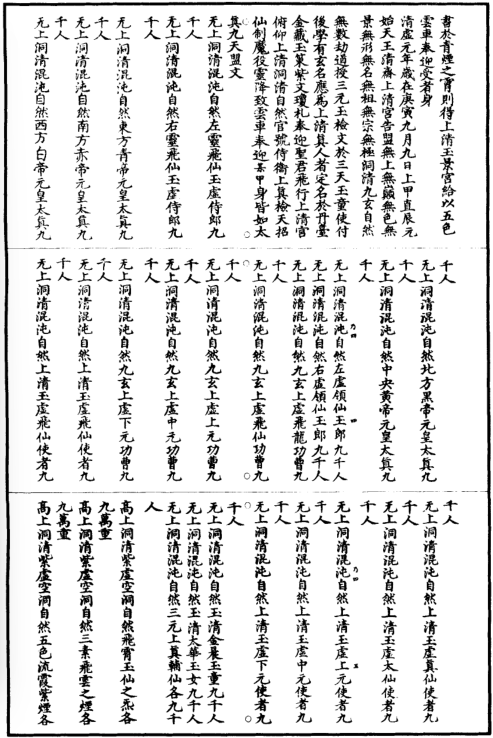 書於青煙之霄則得上清玉景宮給以五色
雲車奉迎受者身
清虛元年歲在庚寅九月九日上甲直辰元
始天王清齋上清宮告盟無上無巔無色無
景無形無名無祖無宗無極洞清九玄自然
無數劫道授三元玉檢文於三天玉童使付
後學有玄名應為上清真人者定名於丹臺
金藏玉策紫文瓊札奉迎聖君飛行上清宮
俯仰上清洞清自然官號侍衛上真檢天招
仙制魔役靈降致雲車奉迎某甲身皆如太
真九天盟文
无上洞清混沌自然左靈飛仙玉虛侍郎九
千人
无上洞清混沌自然右靈飛仙玉虛侍郎九
千人
无上洞清混沌自然東方青帝元皇太真九
千人
无上洞清混沌自然南方赤帝元皇太真九
千人
无上洞清混沌自然西方白帝元皇太真九
千人
无上洞清混沌自然北方黑帝元皇太真九
千人
无上洞清混沌自然中央黃帝元皇太真九
千人
无上洞清混沌自然左虛領仙玉郎九千人
无上洞清混沌自然右虛領仙玉郎九千人
无上洞清混沌自然九玄上虛飛龍功曹九
千人
无上洞清混沌自然九玄上虛飛仙功曹九
千人
无上洞清混沌自然九玄上虛上元功曹九
千人
无上洞清混沌自然九玄上虛中元功曹九
千人
无上洞清混沌自然九玄上虛下元功曹九
千人
无上洞清混沌自然上清玉虛飛仙使者九
千人
无上洞清混沌自然上清玉虛飛仙使者九
千人
无上洞清混沌自然上清玉虛真仙使者九
千人
无上洞清混沌自然上清玉虛太仙使者九
千人
无上洞清混沌自然上清玉虛上元使者九
千人
无上洞清混沌自然上清玉虛中元使者九
千人
无上洞清混沌自然上清玉虛下元使者九
千人
无上洞清混沌自然玉清金晨玉童九千人
无上洞清混沌自然玉清太華玉女九千人
无上洞清混沌自然三元上真輔仙各九千
人
高上洞清紫虛空洞自然飛霄玉仙之炁各
九萬重
高上洞清紫虛空洞自然三素飛雲之煙各
九萬重
高上洞清紫虛空洞自然五色流霞紫煙各